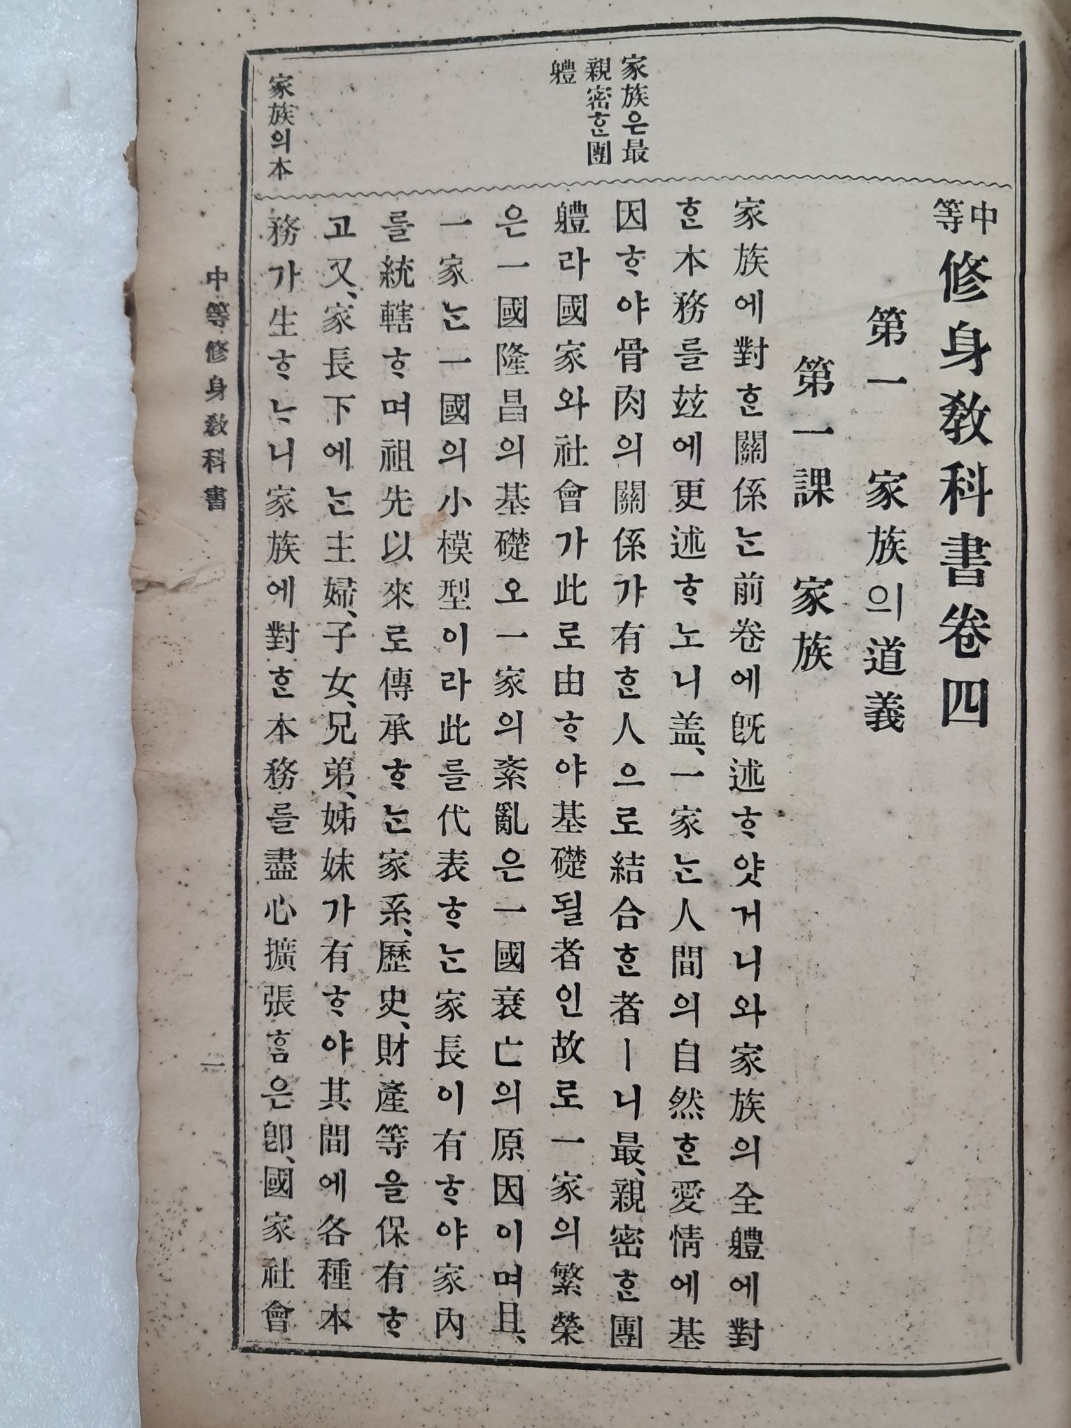 中等 修身敎科書卷四
第一 家族의道義
第一課 家族
家族은最
親密ᄒᆞᆫ團
軆
家族에對ᄒᆞᆫ關係ᄂᆞᆫ前卷에旣述ᄒᆞ얏거니와家族의全軆에對
ᄒᆞᆫ本務를玆에更述ᄒᆞ노니盖、一家ᄂᆞᆫ人間의自然ᄒᆞᆫ愛情에基
因ᄒᆞ야骨肉의關係가有ᄒᆞᆫ人으로結合ᄒᆞᆫ者ㅣ니最、親密ᄒᆞᆫ團
軆라國家와社會가此로由ᄒᆞ야基礎될者인故로一家의繁榮
은一國隆昌의基礎오一家의紊亂은一國衰亡의原因이며且、
一家ᄂᆞᆫ一國의小模型이라此를代表ᄒᆞᄂᆞᆫ家長이有ᄒᆞ야家內
를統轄ᄒᆞ며祖先以來로傳承ᄒᆞᄂᆞᆫ家系、歷史、財產等을保有ᄒᆞ
고又、家長下에ᄂᆞᆫ主婦、子女、兄弟、姊妹가有ᄒᆞ야其間에各種本
家族의本
務가生ᄒᆞᄂᆞ니家族에對ᄒᆞᆫ本務를盡心擴張ᄒᆞᆷ은卽、國家社會
中等修身敎科書
一